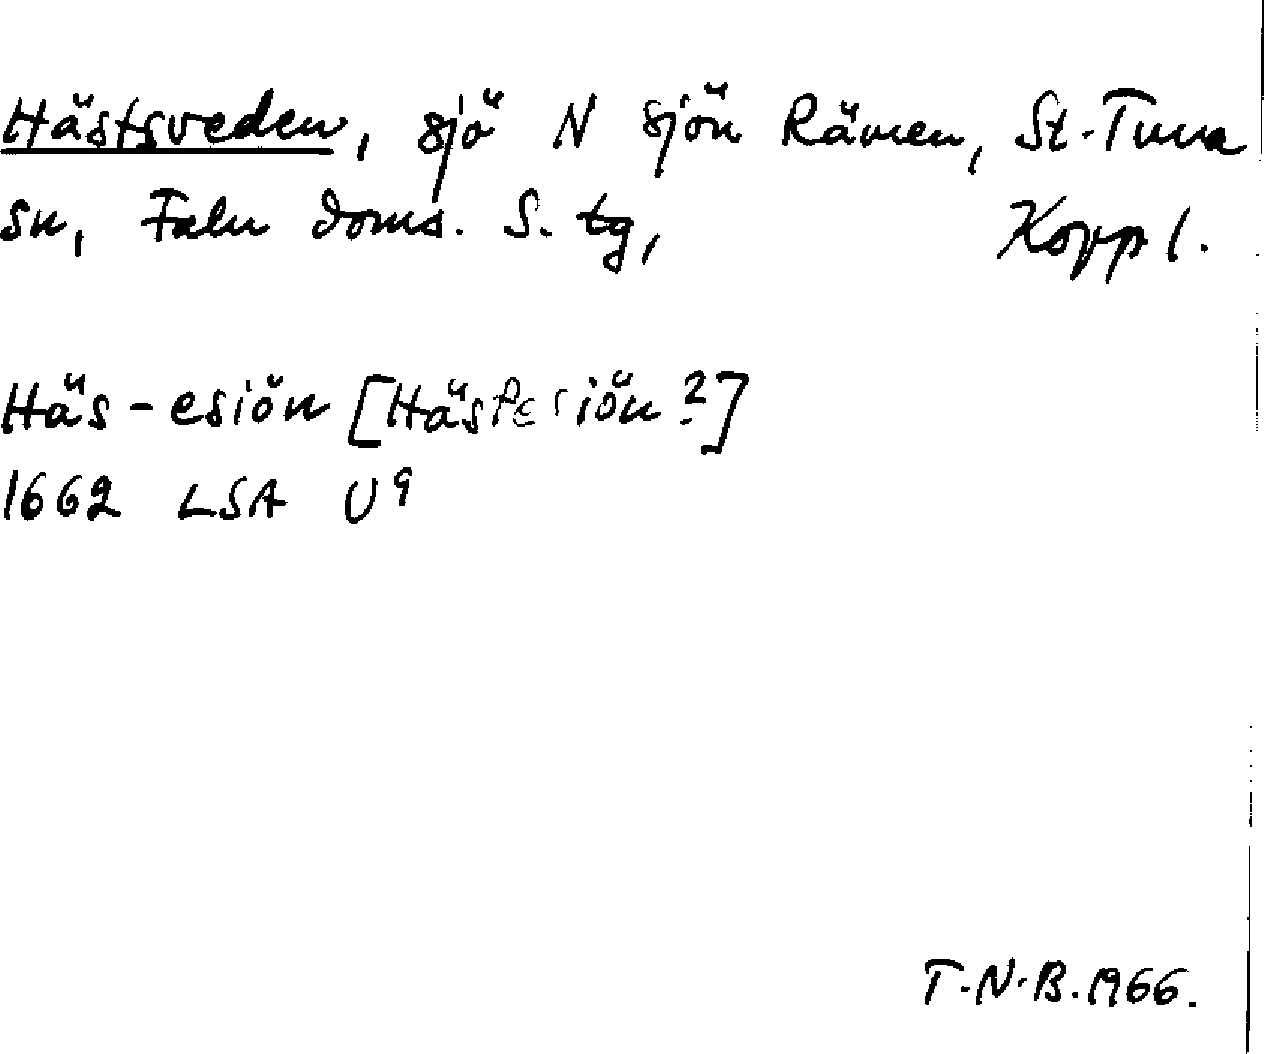 Hästsveden, sjö N sjön Rämen, St. Tuna
sn, Falu doms. S. tg, Kopp l.
Häs-esiön [Hästesiön?]
1662 LSA U9
T.N.B. 1966.